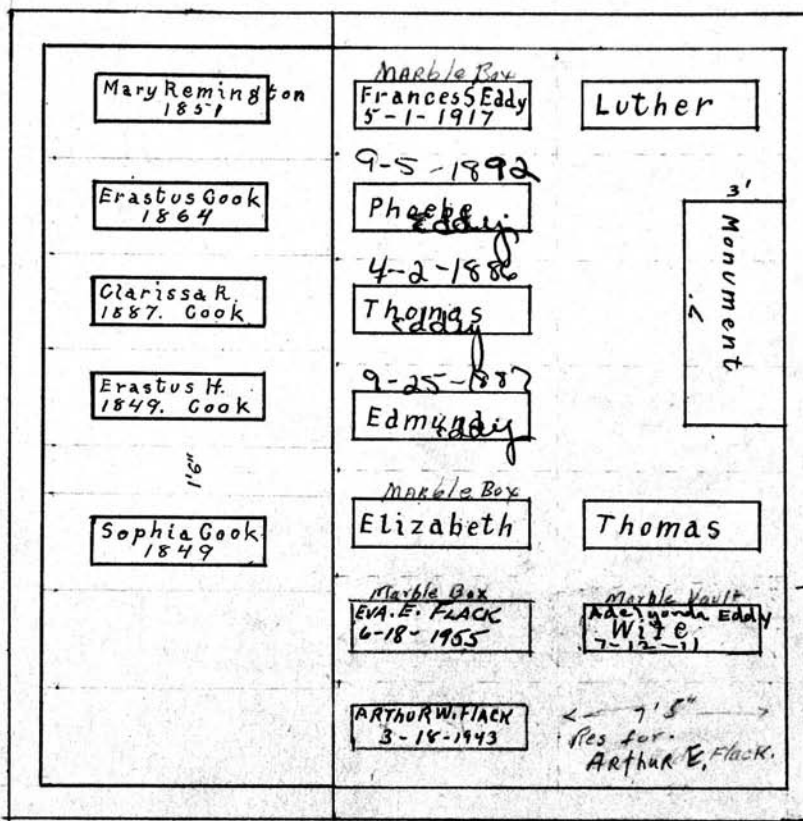 Mary Remington
1851
Erastus Cook
1864
Clarissa R.
1887. Cook
Erastus H.
1849. Cook
1'6"
Sophia Cook
1849
Marble Box
Frances S Eddy
5-1-1917
9-5-1892
Phoebe
Eddy
4-2-1886
Thomas
Eddy
9-25-1887
Edmund
Eddy
Marble Box
Elizabeth
Marble Box
EVA. E. FLACK
6-18-1955
ARTHUR W. FLACK
3-18-1943
Luther
3'
Monument
7'
Thomas
Marble Vault
Eddy
Wife
7-12-11
7'5"
Res for
ARTHUR E. Flack.